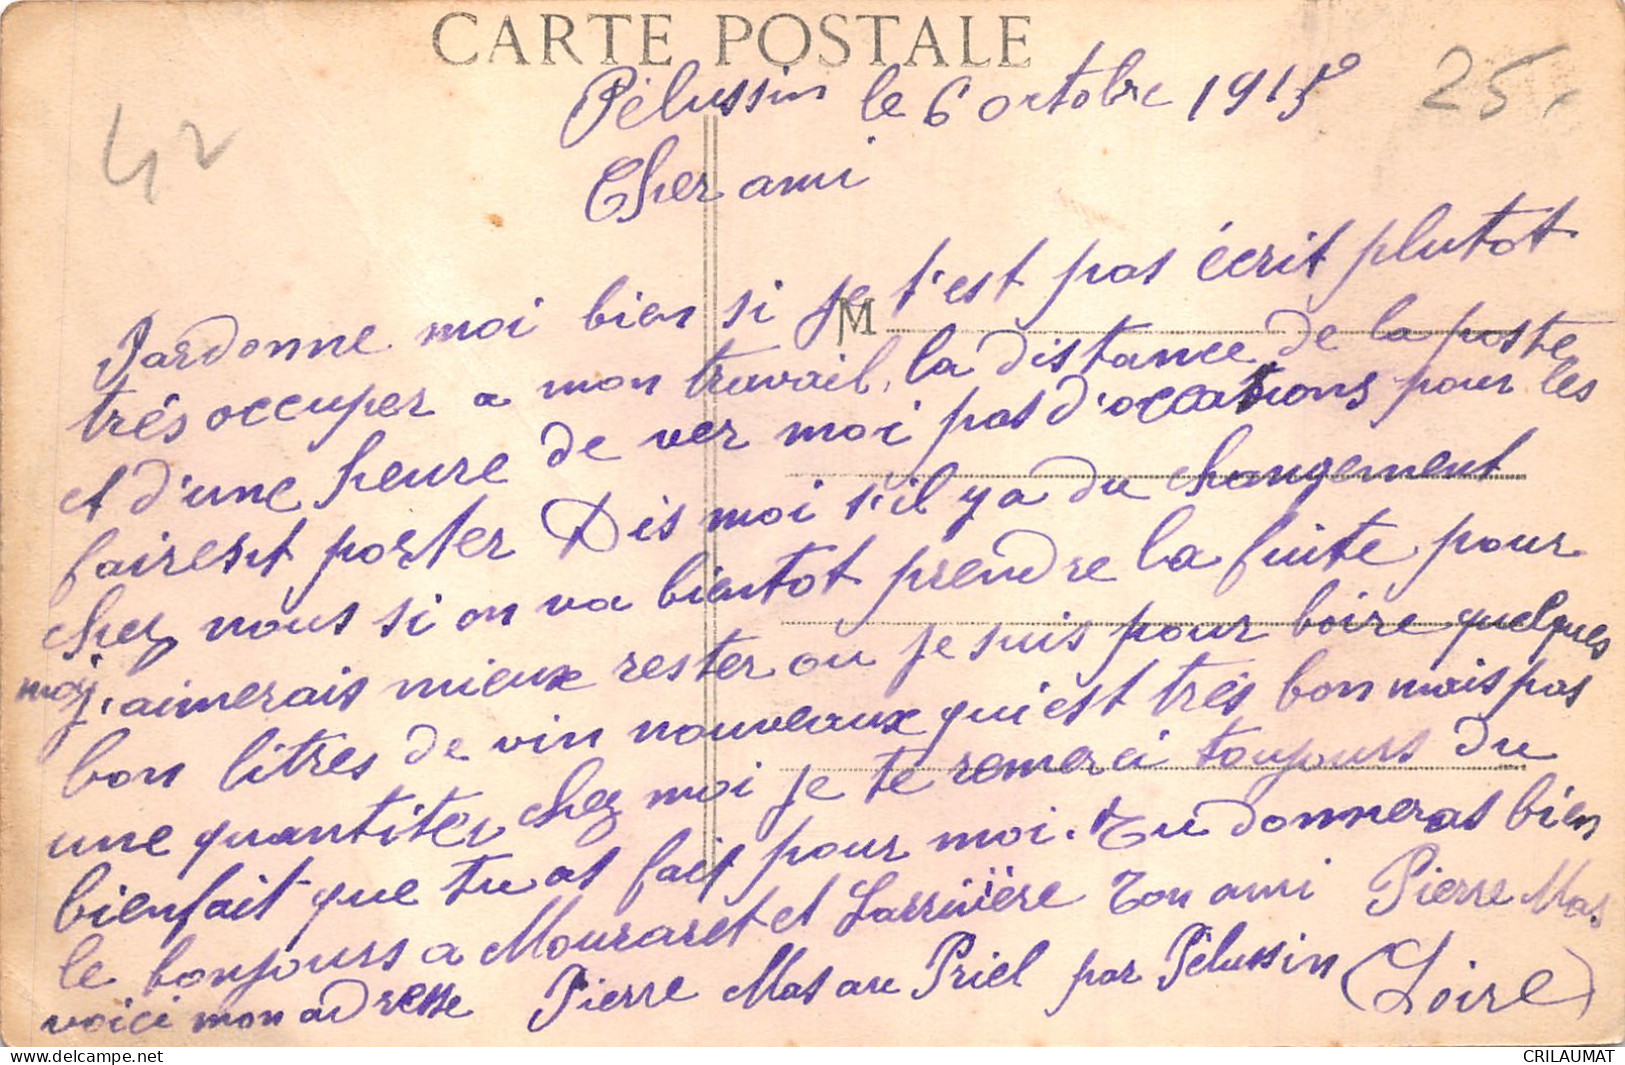 CARTE POSTALE
25
42
Pélussin le 6 octobre 1915
Cher ami
M
Pardonne moi bien si je t'est pas écrit plutot
trés occuper a mon travail, la distance de la poste
et d'une heure de ver moi pas d'occations pour les
fairest porter Dis moi s'il y a du changement
chez nous si on va bientot prendre la fuite pour
moi j'aimerais mieux rester ou je suis pour boire quelques
bon litres de vin nouveaux qui est trés bon mais pas
une quantiter chez moi je te remerci toujours du
bienfait que tu as fait pour moi. Tu donneras bien
le bonjours a Mouraret et Larrivière Ton ami Pierre Mas
voici mon adresse Pierre Mas au Priel par Pélussin (Loire)
CRILAUMAT